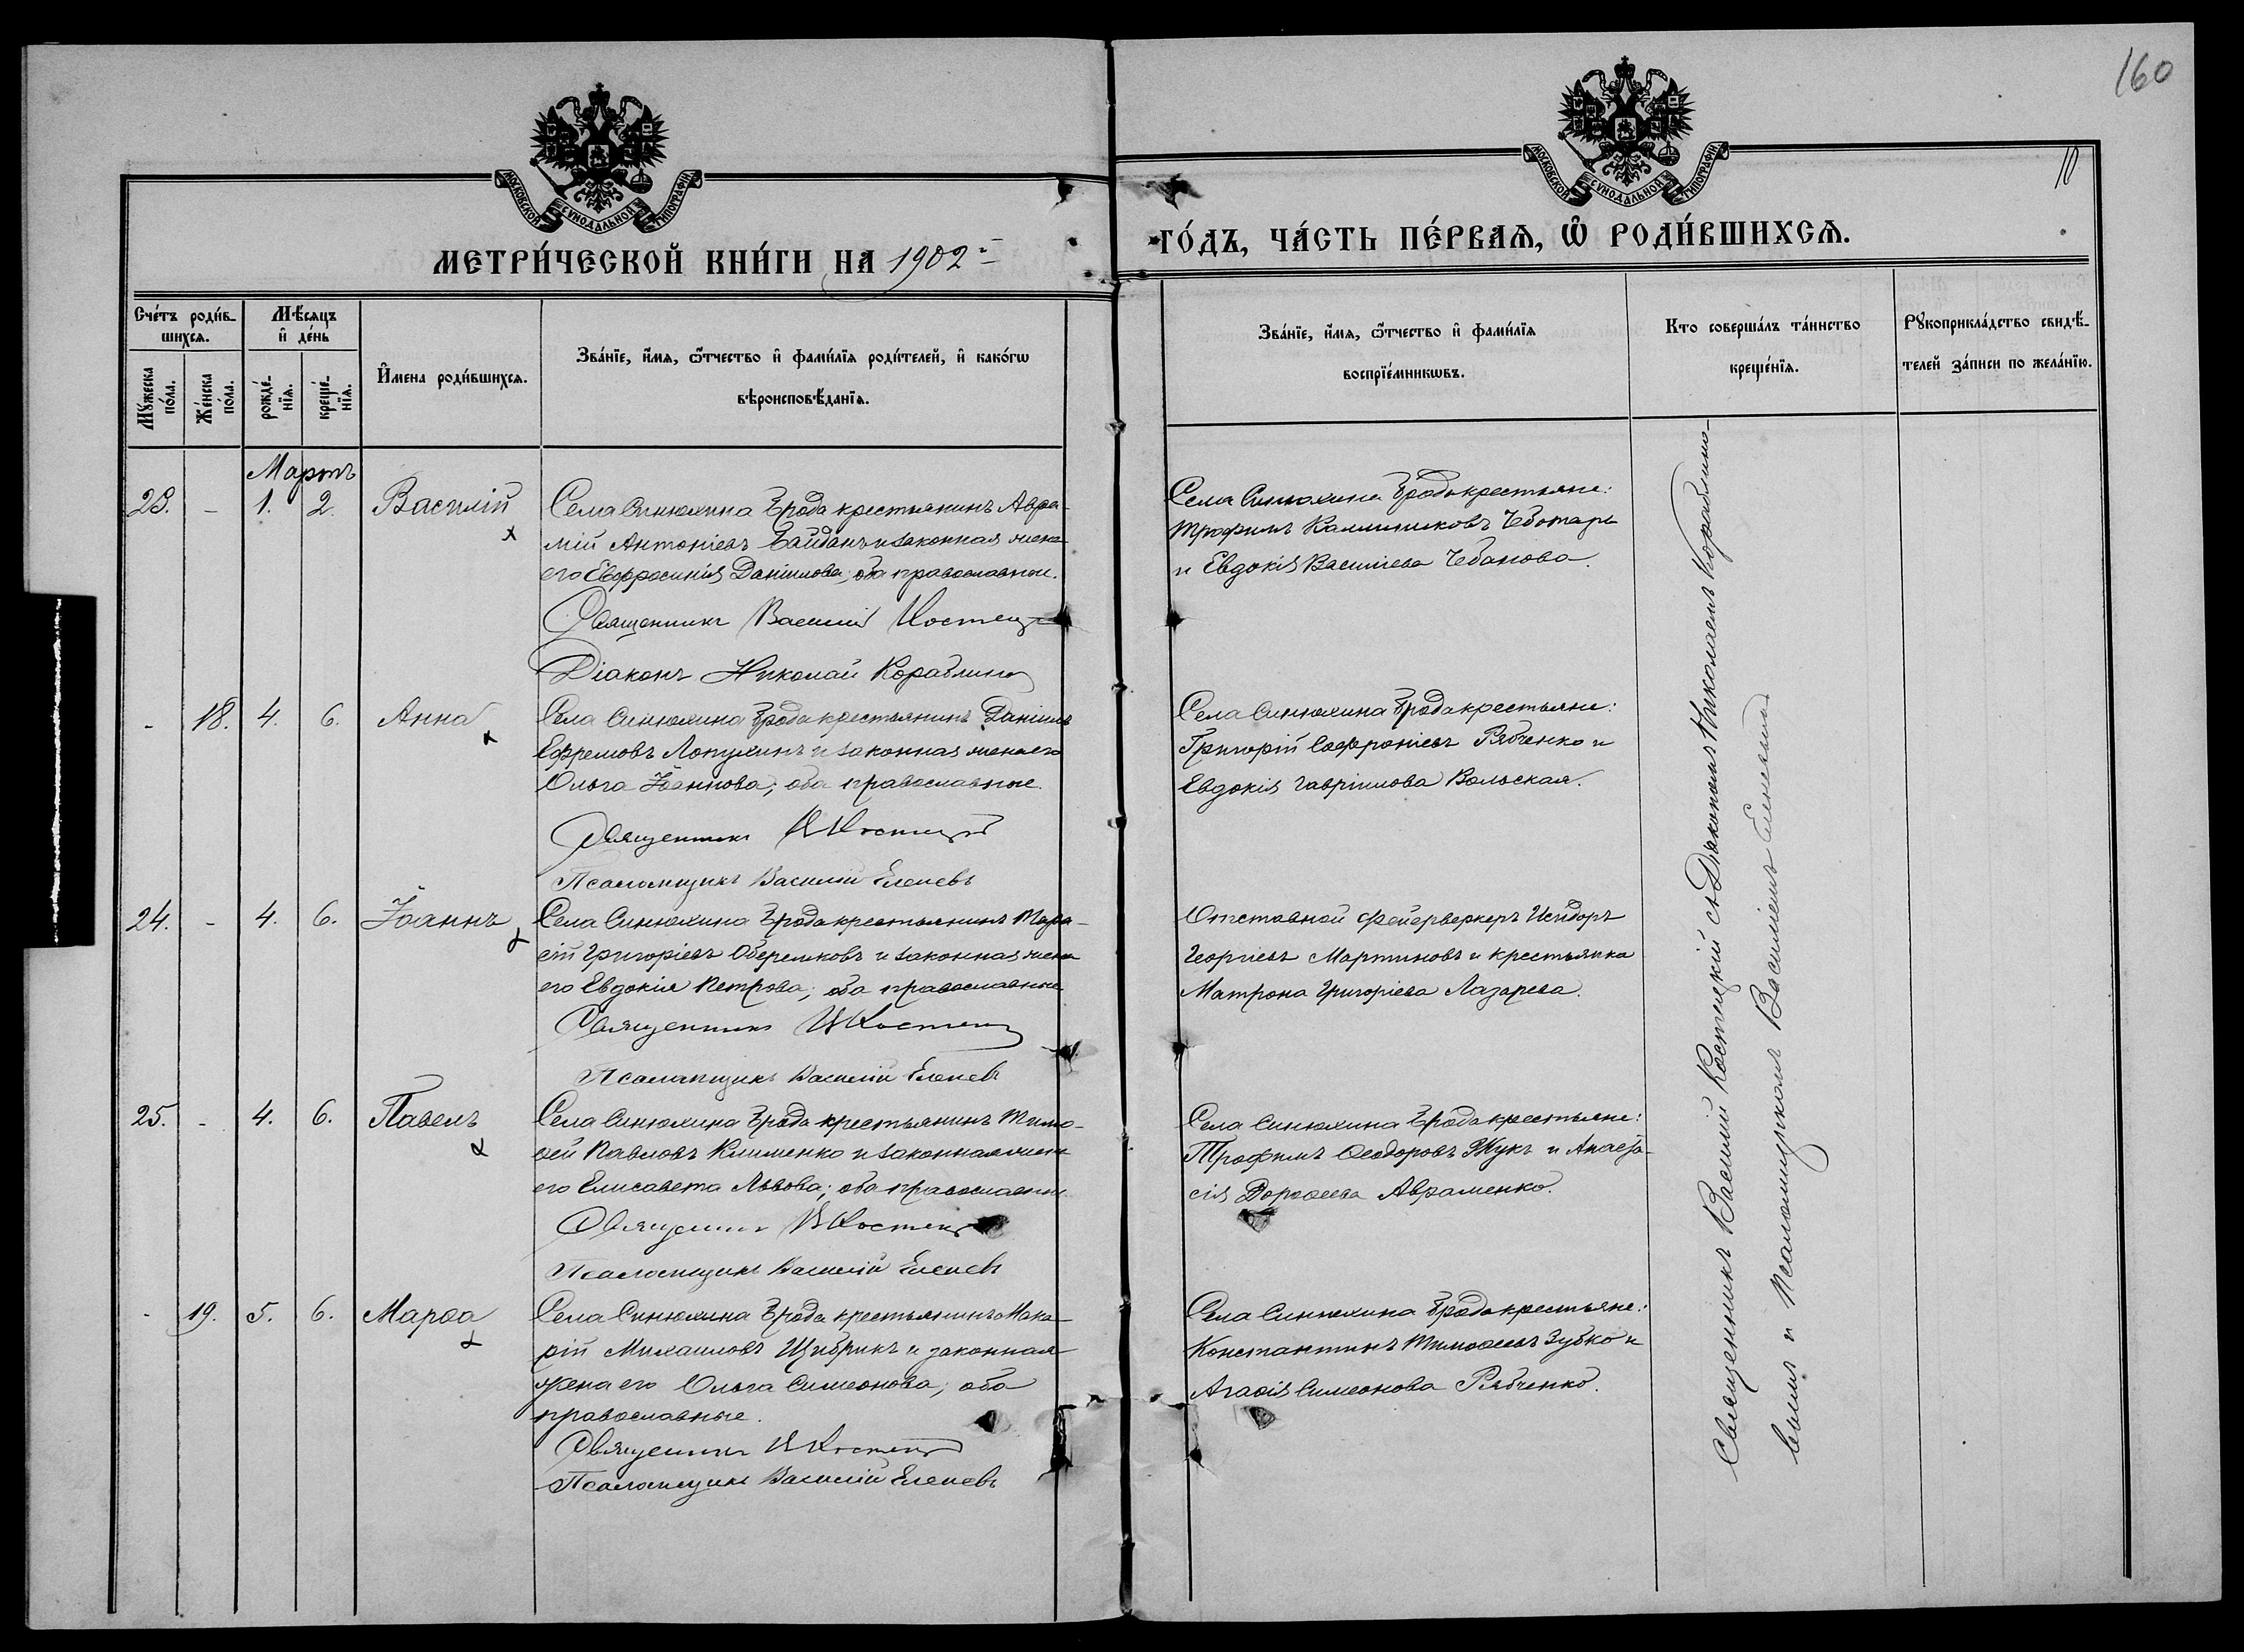 160
10
МОСКОВСКОЙ СѴНОДАЛЬНОЙ ТИПОГРАФІИ
МОСКОВСКОЙ СѴНОДАЛЬНОЙ ТИПОГРАФІИ
МЕТРИ́ЧЕСКОЙ КНИ́ГИ НА 1902 й
ГО́ДЪ, ЧА́СТЬ ПЕ́РВАѦ, Ѽ РОДИ́ВШИХСѦ.
Сче́тъ роди́в-
шихсѧ.
Мꙋ́жеска по́ла.
Же́нска по́ла.
Мѣ́сѧцъ
и҆ де́нь
рожде́-нїѧ.
креще́-нїѧ.
И҆мена роди́вшихсѧ.
Зва́нїе, и҆́мѧ, ѻ҆́тчество и҆ фами́лїѧ роди́телей, и҆ како́гѡ
вѣроисповѣ́данїѧ.
Зва́нїе, и҆́мѧ, ѻ҆́тчество и҆ фами́лїѧ
воспрїе́мникѡвъ.
Кто соверша́лъ та́инство
креще́нїѧ.
Рꙋкоприкла́дство свидѣ́-
телей за́писи по жела́нїю.
Мартъ
23. - 1. 2. Василій
Села Синюхина Брода крестьянинъ Авра-
мій Антоніевъ Байданъ и законная жена
его Евфросинія Даніилова; оба православные.
Священникъ Василій Костецкій
Діаконъ Николай Кораблиновъ
Села Синюхина Брода крестьяне:
Трофимъ Калинниковъ Чеботарь
и Евдокія Васильева Чебанова.
- 18. 4. 6. Анна
Села Синюхина Брода крестьянинъ Даніилъ
Ефремовъ Лопухинъ и законная жена его
Ольга Іоаннова; оба православные.
Священникъ В Костецкій
Псаломщикъ Василій Еленевъ
Села Синюхина Брода крестьяне:
Григорій Софроніевъ Рябченко и
Евдокія Гавріилова Вольская.
24. - 4. 6. Іоаннъ
Села Синюхина Брода крестьянинъ Тара-
сій Григоріевъ Оберемковъ и законная жена
его Евдокія Петрова; оба православные
Священникъ В Костецкій
Псаломщикъ Василій Еленевъ
Отставной фейерверкеръ Исидоръ
Георгіевъ Мартиновъ и крестьянка
Матрона Григоріева Лазарева.
25. - 4. 6. Павелъ
Села Синюхина Брода крестьянинъ Тимо-
ѳей Павловъ Клименко и законная жена
его Елисавета Львова; оба православные
Священникъ В Костецкій
Псаломщикъ Василій Еленевъ
Села Синюхина Брода крестьяне:
Трофимъ Ѳеодоровъ Жукъ и Анаста-
сія Дороѳеева Авраменко.
- 19. 5. 6. Марѳа
Села Синюхина Брода крестьянинъ Мака-
рій Михаиловъ Щибрикъ и законная
жена его Ольга Симеонова; оба
православные.
Священникъ В Костецкій
Псаломщикъ Василій Еленевъ
Села Синюхина Брода крестьяне:
Константинъ Тимоѳеевъ Зубко и
Агаѳія Симеонова Рябченко.
Священникъ Василій Костецкій съ Діакономъ Николаемъ Кораблино-
вымъ и Псаломщикомъ Василіемъ Еленевымъ